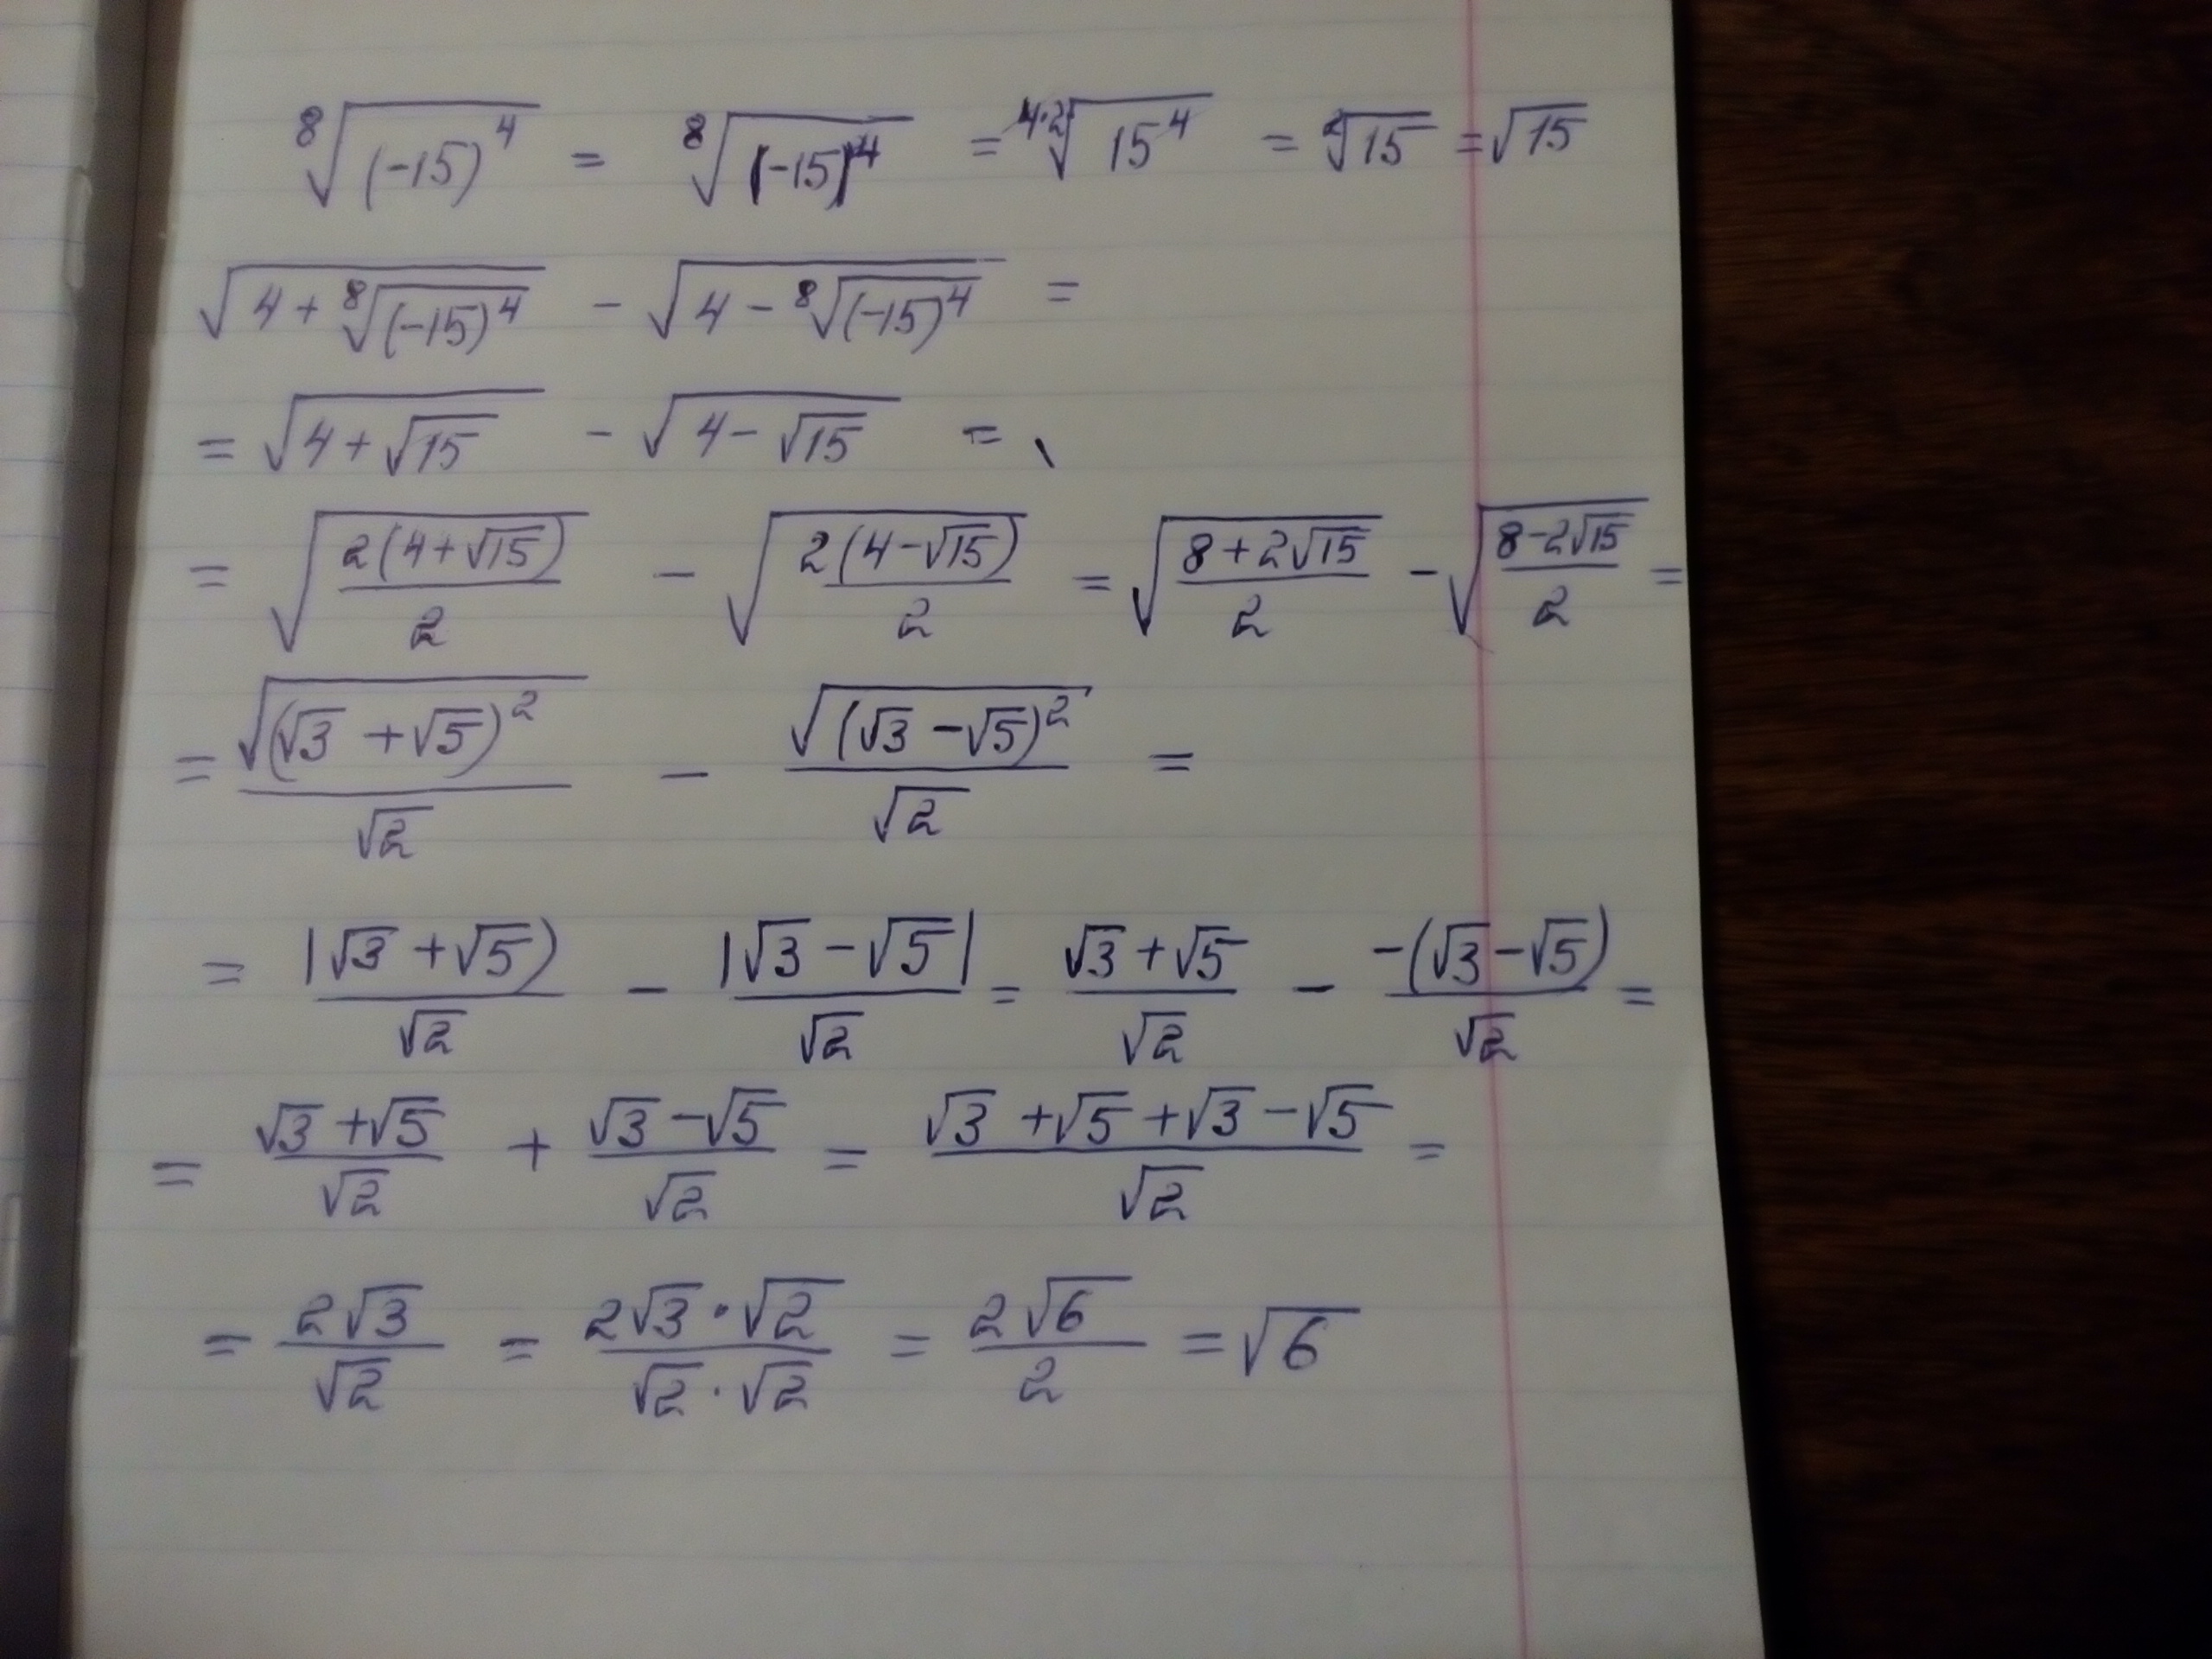 ⁸√((-15)⁴) = ⁸√(|-15|⁴) = ⁴·²√(15⁴) = ²√15 = √15
√(4 + ⁸√((-15)⁴)) - √(4 - ⁸√((-15)⁴)) =
= √(4 + √15) - √(4 - √15) =
= √(2(4+√15)/2) - √(2(4-√15)/2) = √((8+2√15)/2) - √((8-2√15)/2) =
= √((√3 + √5)²)/√2 - √((√3 - √5)²)/√2 =
= |√3 + √5)/√2 - |√3 - √5|/√2 = (√3 + √5)/√2 - -(√3 - √5)/√2 =
= (√3 + √5)/√2 + (√3 - √5)/√2 = (√3 + √5 + √3 - √5)/√2 =
= 2√3/√2 = (2√3 · √2)/(√2 · √2) = 2√6/2 = √6